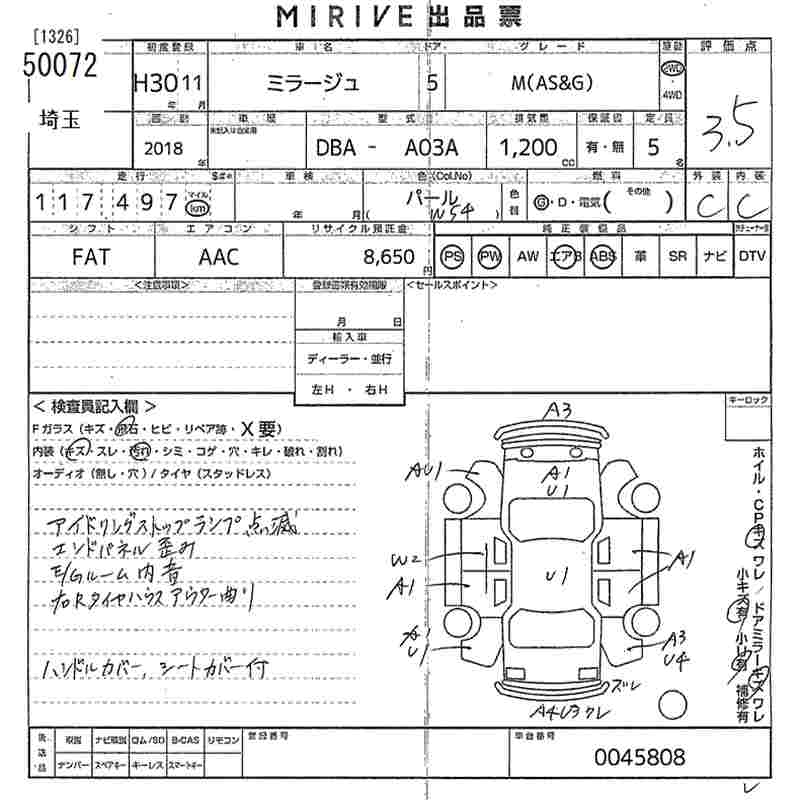 MIRIVE 出品票
[1326]
50072
埼玉
初度登録 車名 ドア グレード 駆動 評価点
H30 11 年 月 ミラージュ 5 M(AS&G) 2WD ・ 4WD 3.5
車歴 型式 排気量 保証書 定員
2018 年 DBA - A03A 1,200 CC 有・無 5 名
走行 車検 色(Col.No) 燃料 外装 内装
117,497 マイル km 年 月 パール ( W54 ) 色替 G・D・電気( その他 ) C C
シフト エアコン リサイクル預託金 純正装備品
FAT AAC 8,650 円 PS PW AW エアB ABS 革 SR ナビ DTV
<注意事項> <セールスポイント>
月 日
輸入車
ディーラー・並行
左H ・ 右H
< 検査員記入欄 > キーロック
Fガラス (キズ・飛石・ヒビ・リペア跡・X要)
内装 (キズ・スレ・汚れ・シミ・コゲ・穴・キレ・破れ・割れ)
オーディオ (無し・穴) / タイヤ (スタッドレス)
アイドリングストップランプ点滅
エンドパネル歪み
E/Gルーム内音
右Rタイヤハウスアウター曲り
ハンドルカバー, シートカバー付
A3
AU1 A1
U1
W2 U1 A1
A1
A1
U1 A3
U4
ズレ
A4U3ワレ
ホイル・CPキズワレ / ドアミラーキズワレ
小キズ有 小凹有 補修有
後送品 取説 ナビ取説 ロム/SD B-CAS リモコン 登録番号 車台番号
ナンバー スペアキー キーレス スマートキー
0045808